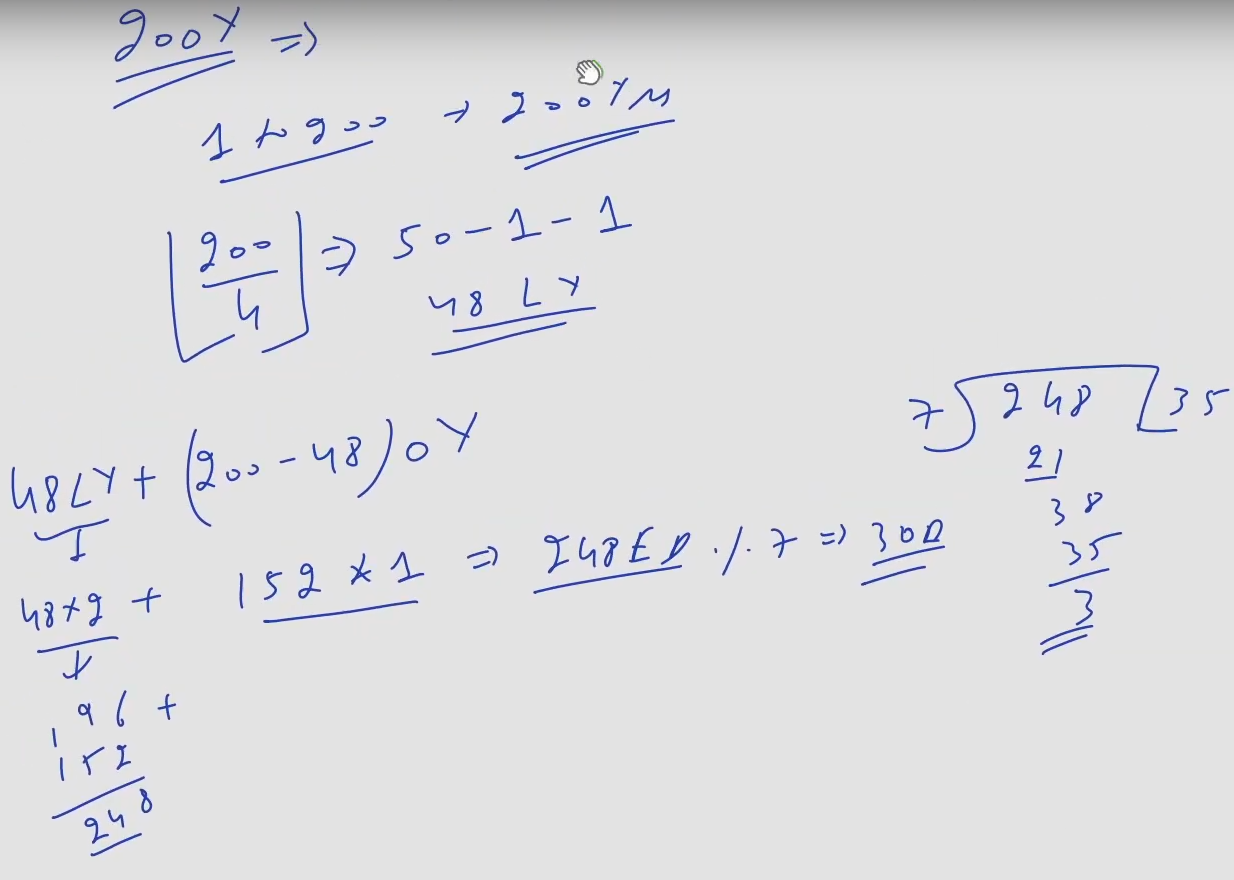 200Y ⇒
1 to 200 → 200YM
[200/4] ⇒ 50-1-1
48 LY
48LY + (200-48) OY
48×2 + 152 × 1 ⇒ 248ED % 7 ⇒ 3OD
96 +
152
248
7) 248 [35
21
38
35
3